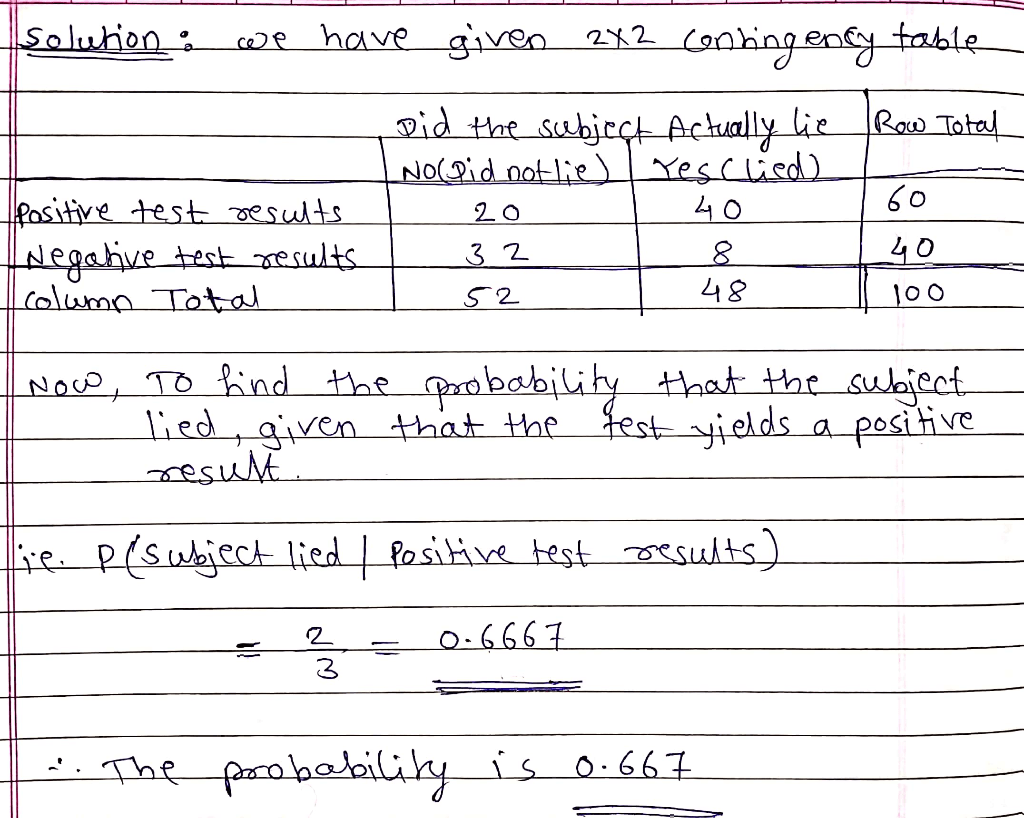 Solution : we have given 2x2 contingency table
Did the subject Actually lie Row Total
No(Did not lie) Yes (lied)
Positive test results 20 40 60
Negative test results 32 8 40
Column Total 52 48 100
Now, To find the probability that the subject
lied, given that the test yields a positive
result.
i.e. P(subject lied | Positive test results)
= 2/3 = 0.6667
∴ The probability is 0.667